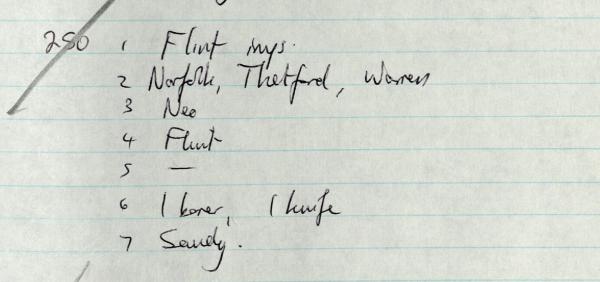 280 1 Flint imps.
2 Norfolk, Thetford, Warren
3 Neo
4 Flint
5 —
6 1 borer, 1 knife
7 Sandy.